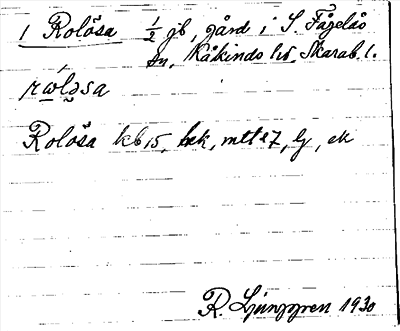 1 Rolösa ½ gb, gård i S. Fågelås
sn, Kåkinds hd, Skarab. l.
Rolösa kb 15, bek, mtl 27, lj, ek
R. Ljunggren 1930